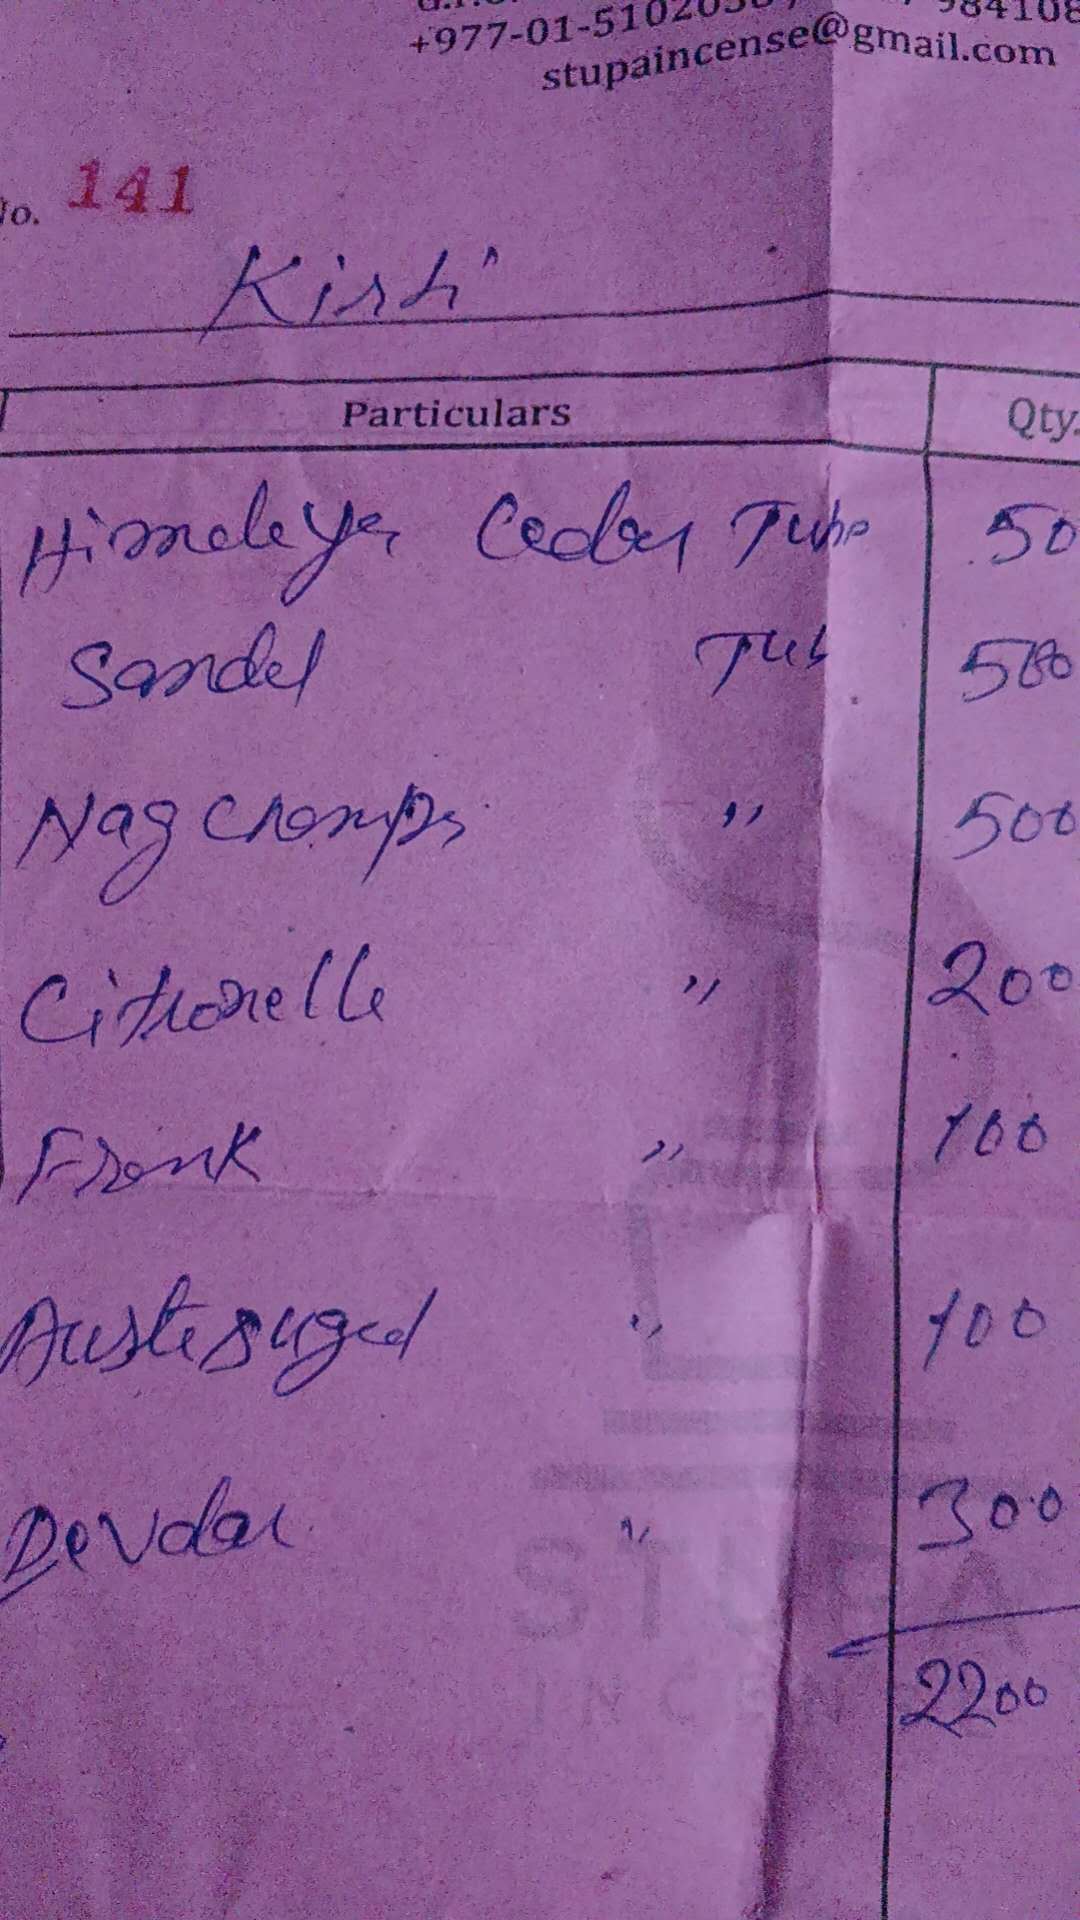 +977-01-510203
stupaincense@gmail.com
No. 141
Particulars Qty.
Himeleyer Ceder Tube 50
Sandel Tub 500
Nag Chempa " 500
Citronelle " 200
Frenk " 100
" 100
Devdar " 300
2200
STUPA
INCEN